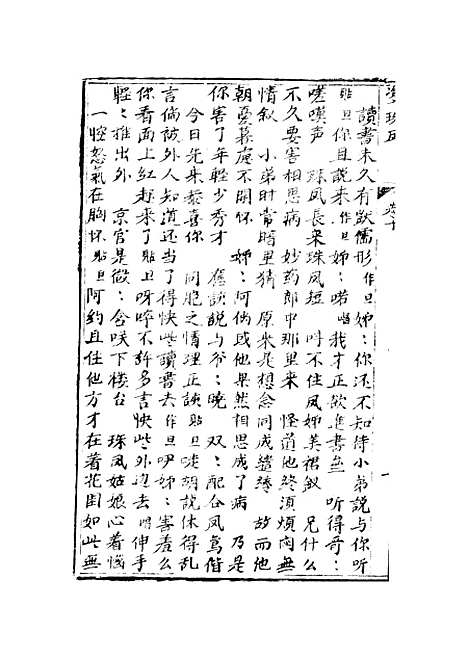 卷十
讀書未久有獃儒形作旦姊：你还不知待小弟説与你听
貼旦你且説来作旦姊：喏唱我才正欲進書無 听得哥：
嗟嘆声 珠凤長来珠凤短 呌不住凤姊美裙釵 兄什么
不久要害相思病 妙药郎中那里来 怪道他終須煩闷無
情叙 小弟时常暗里猜 原来是想念同成繾綣 故而他
朝憂暮慮不開怀 姊：阿倘或他果然相思成了病 乃是
你害了年輕少秀才 舊談説与爷：曉 双：配合凤鸾偕
今日先来恭喜你 同胞之情理正談貼旦啖胡説休得乱
言倘被外人知道还当了得快些讀書去作旦咿姊：害羞么
你看面上紅起来了貼旦呀啐不許多言快些外边去唱伸手
輕：推出外 京官是微：含咲下楼台 珠凤姑娘心着惱
一腔怒氣在胸怀貼旦阿約且住他方才在着花園如此無